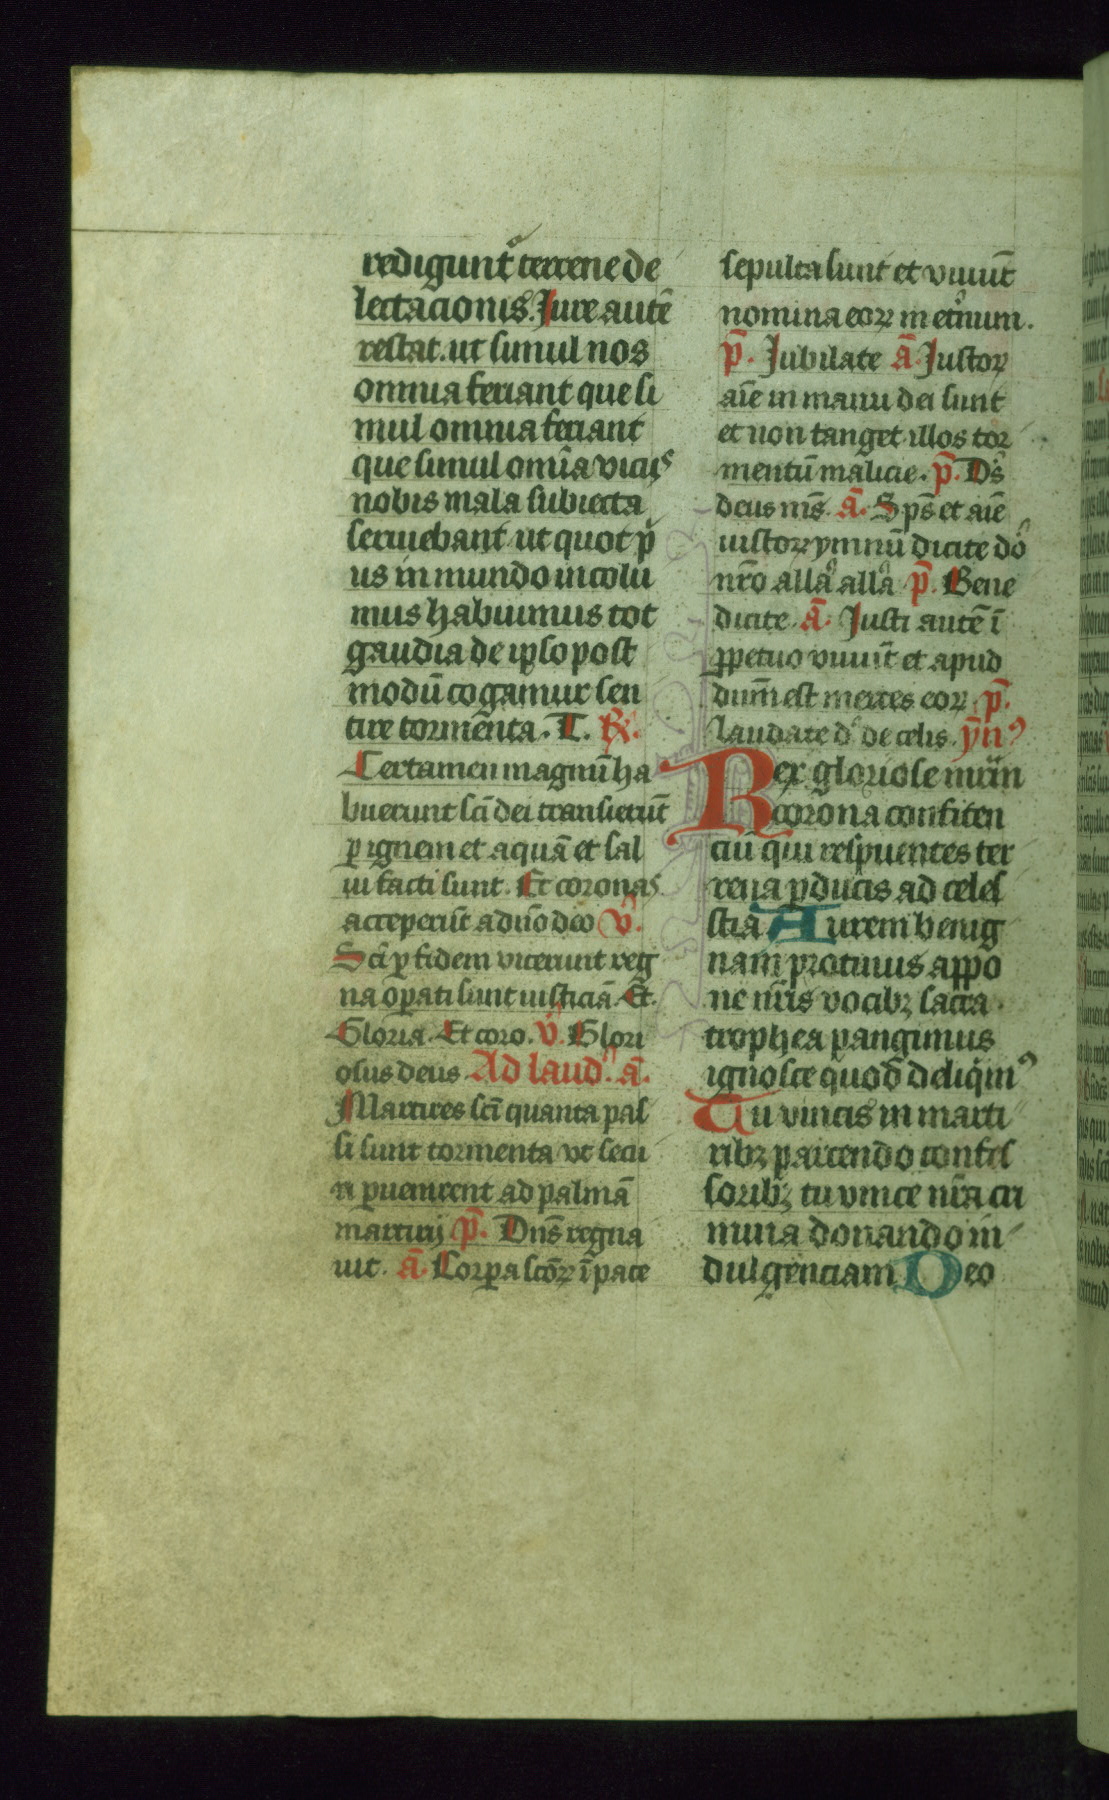 redigunt͛ terrene de
lectacionis. Jure autē
restat. ut simul nos
omnia feriant que si
mul omnia feriant
que simul omīa viciis
nobis mala subiecta
seruiebant ut quot p̄
us in mundo incolu
mus habuimus tot
gaudia de ip̱o post
modū cogamur sen
tire tormēnta. T. R̷.
Certamen magnū ha
buerunt scī dei transierūt
ꝑ ignem et aquā et sal
ui facti sunt. Et coronas
acceperūt a dīno deo v͛.
Scī ꝑ fidem vicerunt reg
na oꝑati sunt iusticiā. Et.
Gloria. Et coro. v͛. Glori
osus deus Ad laud͛. ā.
Martires scī quanta pas
si sunt tormenta vt secu
ri ꝑuenirent ad palmā
martirij p̄. Dn̄s regna
uit. ā. Corꝑa scōꝝ ī pace
sepulta sunt et viuūt
nomina eoꝝ in et͛num.
p̄. Jubilate ā. Justoꝝ
aīe in manu dei sunt
et non tanget illos tor
mentū malicie. p̄. Ds̄
deus ms̄. ā. Sps̄ et aīe
iustoꝝ ymnū dicite dō
nr̄o allā allā p̄. Bene
dicite. ā. Justi autē ī
ꝑpetuo viuūt et apud
dum̄ est merces eoꝝ. p̄.
Laudate d͛ de celis. ȳnꝰ
Rex gloriose mr̄m
corona confiten
ciū qui respuentes ter
rena ꝑducis ad celes
stia Aurem benig
nam protinus appo
ne nr̄is vocibꝫ sacra
trophea pangimus
ignosce quod̄ deliqimꝰ
Tu vincis in marti
ribꝫ parcendo confes
soribꝫ tu vince nr̄a cri
mina donando in
dulgenciam Deo